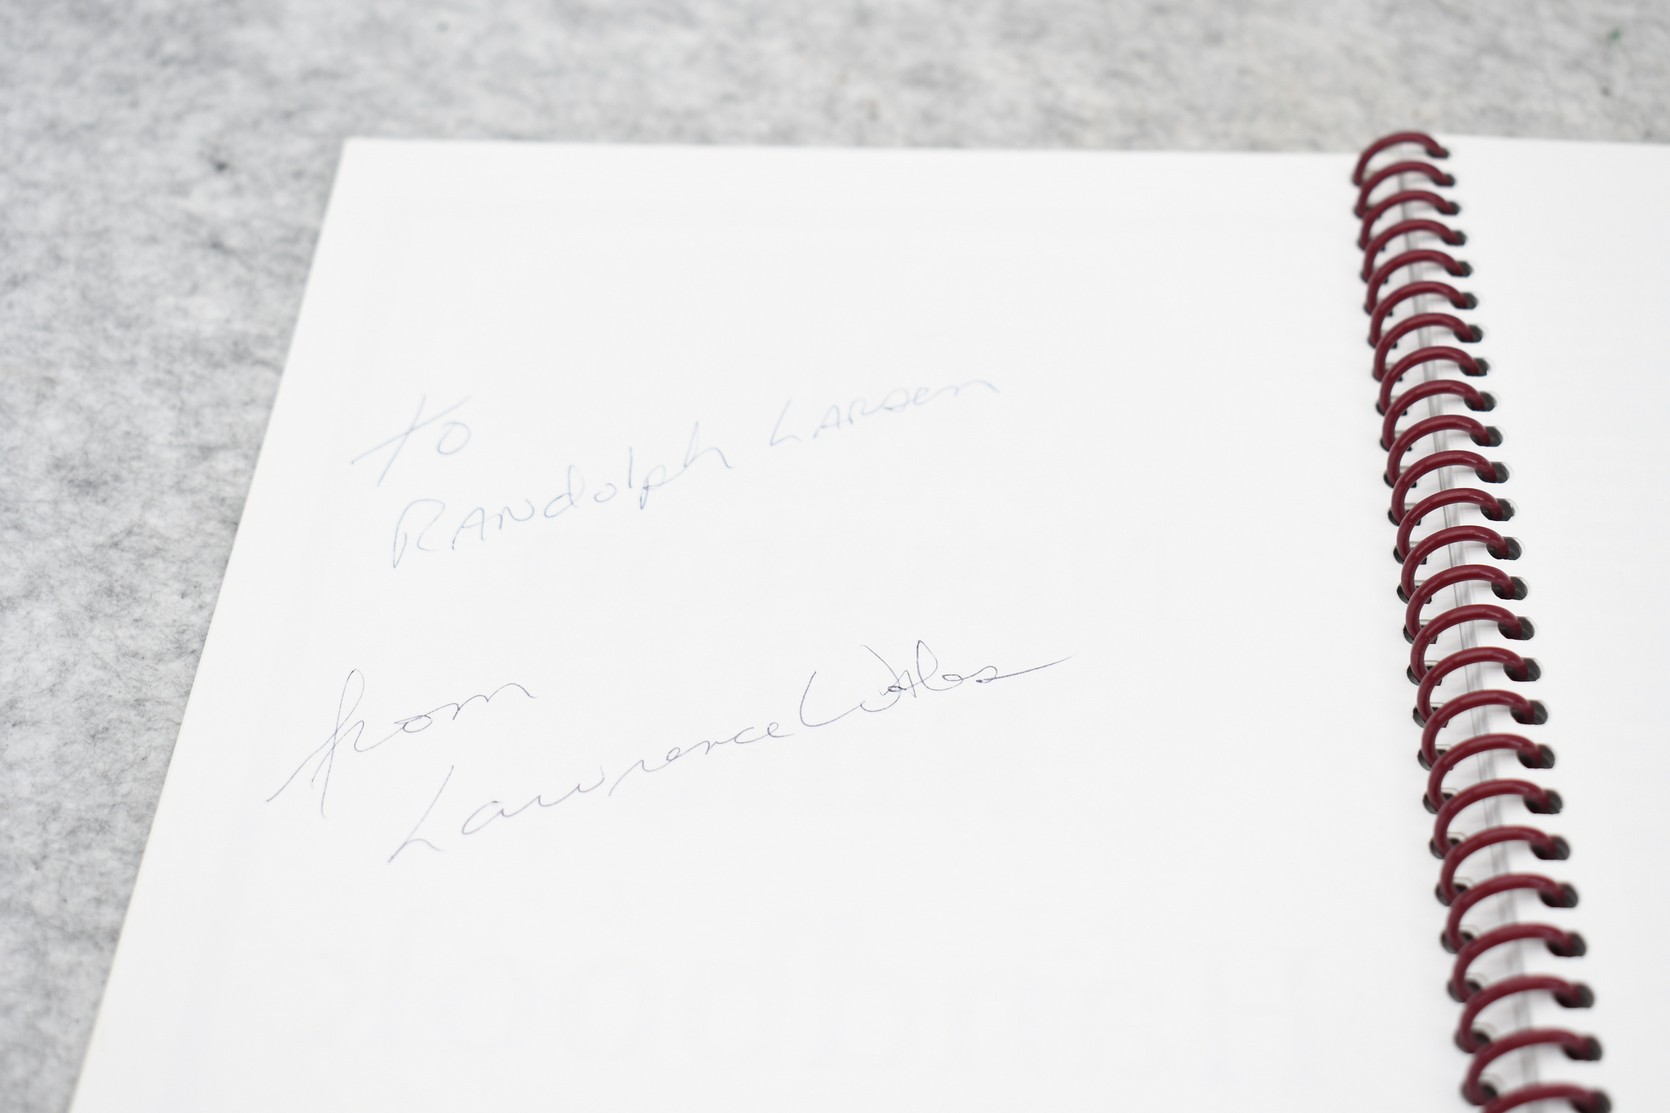 to
RANdolph LARSEN
from
Lawrence